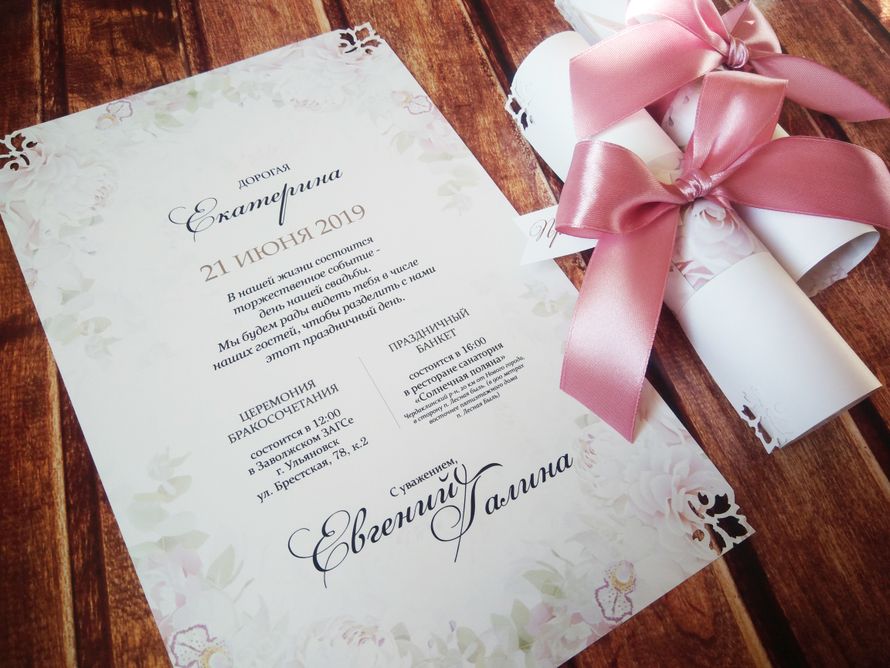 ДОРОГАЯ
Екатерина
21 ИЮНЯ 2019
В нашей жизни состоится
торжественное событие -
день нашей свадьбы.
Мы будем рады видеть тебя в числе
наших гостей, чтобы разделить с нами
этот праздничный день.
ЦЕРЕМОНИЯ
БРАКОСОЧЕТАНИЯ
состоится в 12:00
в Заволжском ЗАГСе
г. Ульяновск
ул. Брестская, 78, к.2
ПРАЗДНИЧНЫЙ
БАНКЕТ
состоится в 16:00
в ресторане санатория
«Солнечная поляна»
Чердаклинский р-н, 20 км от Нового города,
в сторону п. Лесная быль. (в 900 метрах
восточнее пятиэтажного дома
п. Лесная Быль)
С уважением,
Евгений Галина